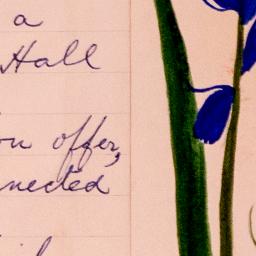 a
Hall
on offer,
nected